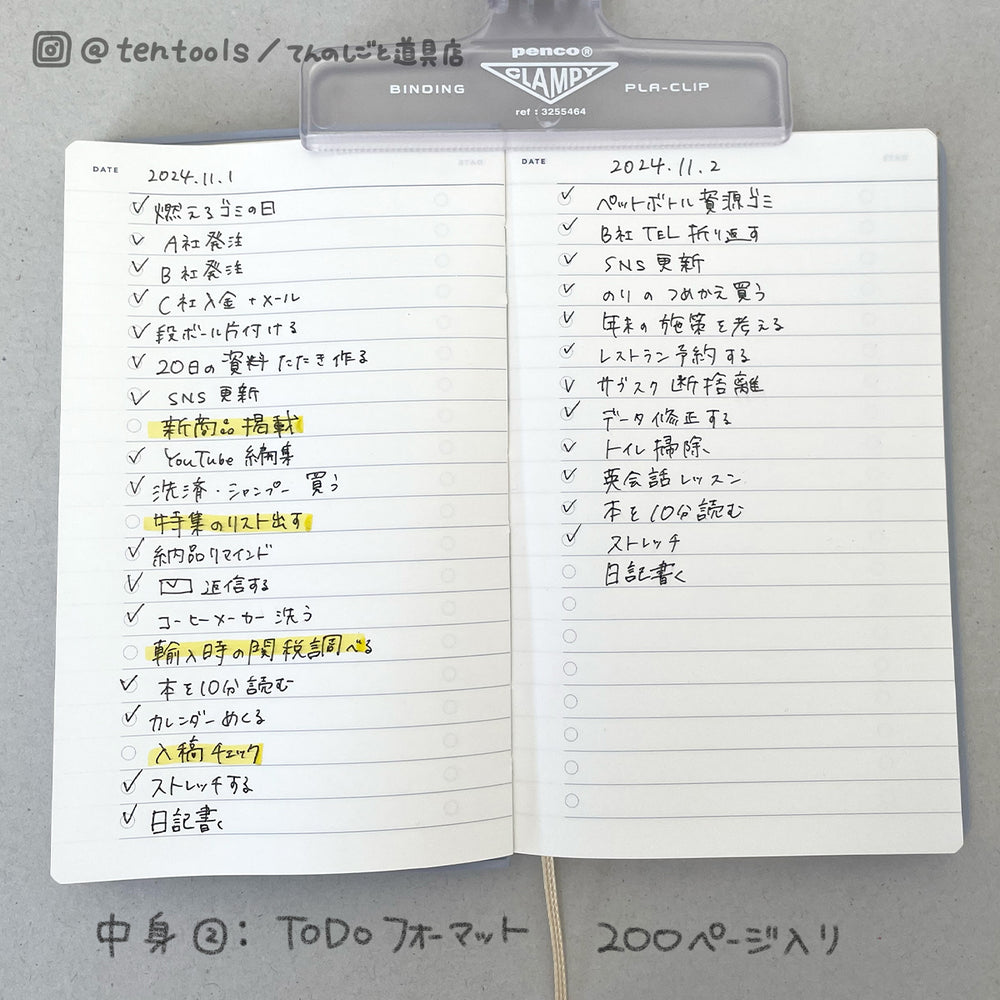 @tentools/てんのしごと道具店
penco®
CLAMPY
BINDING PLA-CLIP
ref : 3255464
DATE 2024.11.1
燃えるゴミの日
A社発注
B社発注
C社入金+メール
段ボール片付ける
20日の資料たたき作る
SNS更新
新商品掲載
YouTube編集
洗済・シャンプー買う
特集のリスト出す
納品リマインド
返信する
コーヒーメーカー洗う
輸入時の関税調べる
本を10分読む
カレンダーめくる
入稿チェック
ストレッチする
日記書く
DATE 2024.11.2
ペットボトル資源ゴミ
B社TEL折り返す
SNS更新
のりのつめかえ買う
年末の施策を考える
レストラン予約する
サブスク断捨離
データ修正する
トイレ掃除
英会話レッスン
本を10分読む
ストレッチ
日記書く
中身②:ToDoフォーマット 200ページ入り